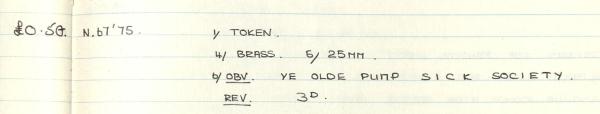 £0.50. N.67'75. 1/ TOKEN.
4/ BRASS. 5/ 25MM.
6/ OBV. YE OLDE PUMP SICK SOCIETY.
REV. 3D.